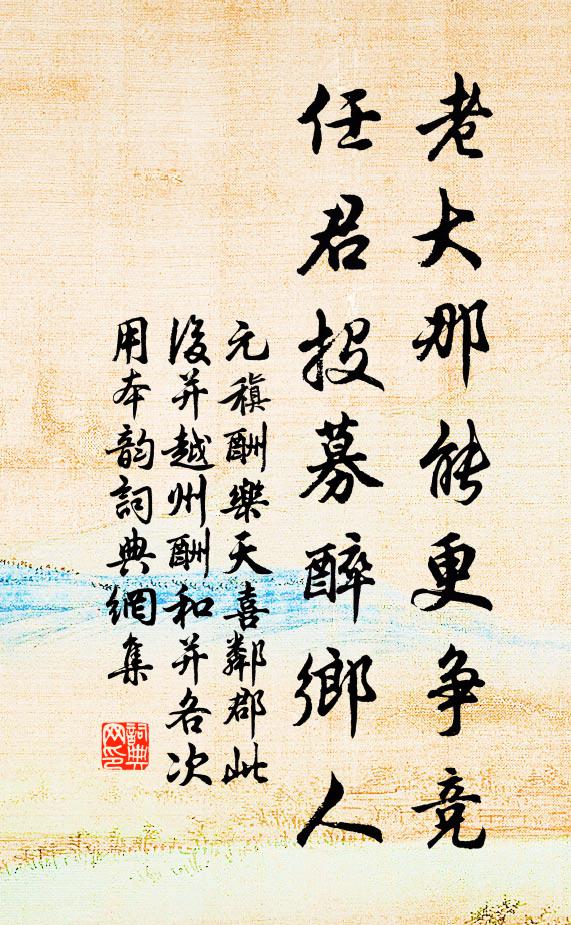 老大那能更争竞
任君投募醉鄉人
元稹酬樂天喜鄰郡此
後并越州酬和并各次
用本韵詞典網集
詞典
网印